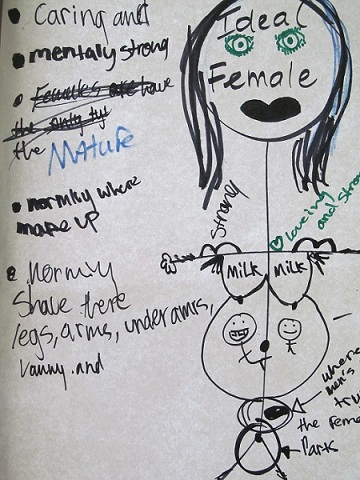 • Caring and
• mentaly strong
• Females are have
the only ty
the MATURE
• normly where
make up
• Normly
Shave there
legs, arms, underarms,
vanny.and
Ideal
Female
Strong
Loveing
and stron
MiLK MiLK
where
men's
tru
the fema
Park